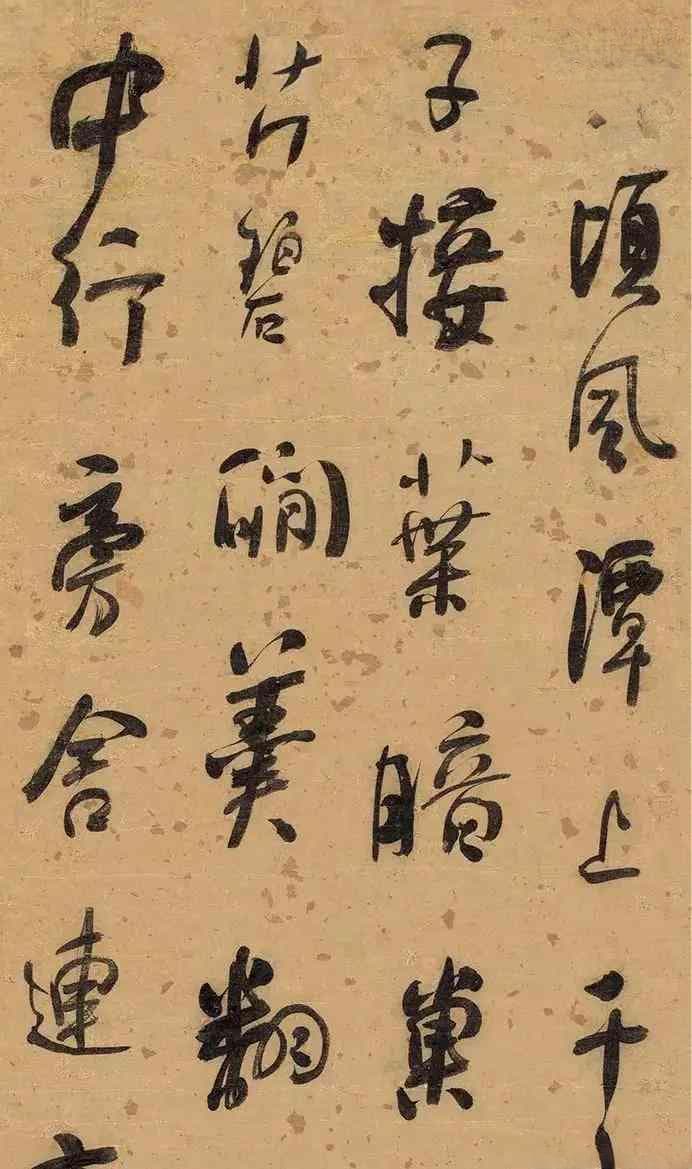 頃風潭上千
子接葉暗巢
芹碧澗羹翻
中行旁舍連